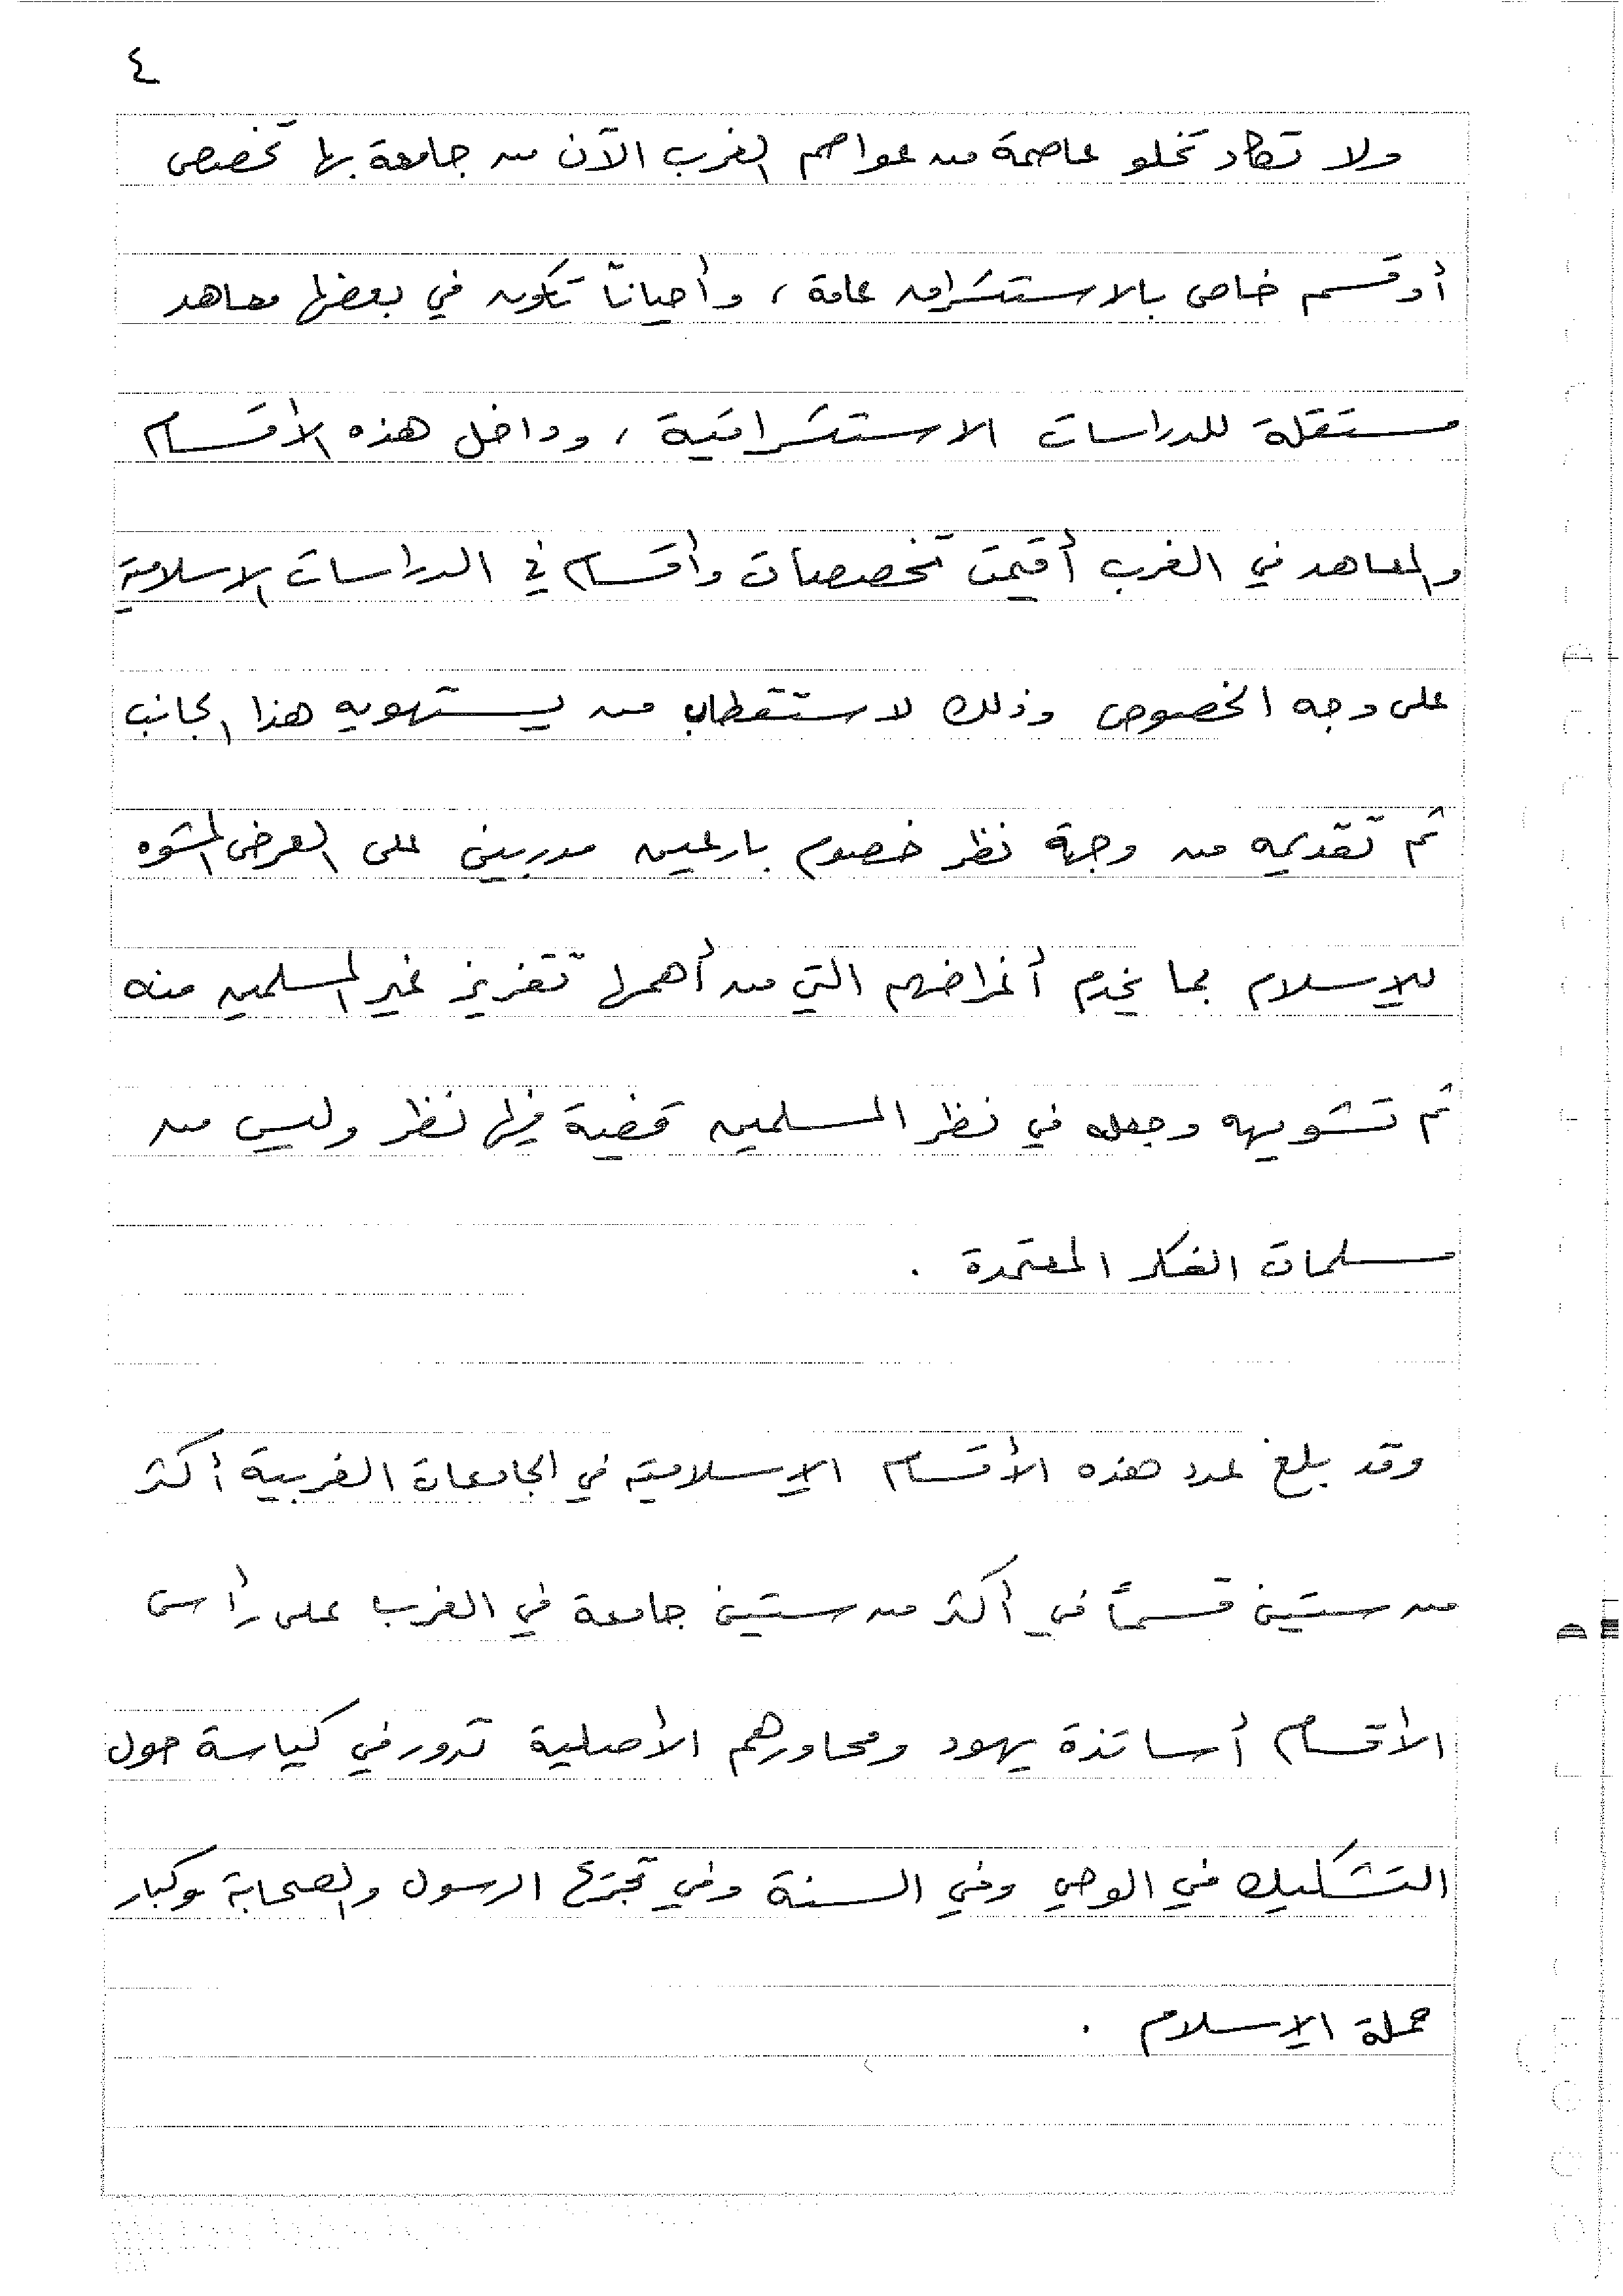 ٤
ولا تكاد تخلو عاصمة من عواصم الغرب الآن من جامعة بها تخصص
أو قسم خاص بالاستشراق عامة ، وأحياناً تكون في بعضها معاهد
مستقلة للدراسات الاستشراقية ، وداخل هذه الأقسام
والمعاهد في الغرب أقيمت تخصصات وأقسام في الدراسات الإسلامية
على وجه الخصوص وذلك لاستقطاب من يستهويه هذا الجانب
ثم تقديمه من وجهة نظر خصوم بارعين مدربين على العرض المشوه
للإسلام بما يخدم أغراضهم التي من أهمها تفزيز غير المسلمين منه
ثم تشويهه وجعله في نظر المسلمين قضية فيها نظر وليس من
مسلمات الفكر المعتمدة .
وقد بلغ عدد هذه الأقسام الإسلامية في الجامعات الغربية أكثر
من ستين قسماً في أكثر من ستين جامعة في الغرب على رأس
الأقسام أساتذة يهود ومحاورهم الأصلية تدور في كياسة حول
التشكيك في الوحي وفي السنة وفي الرسول والصحابة وكبار
حملة الإسلام .